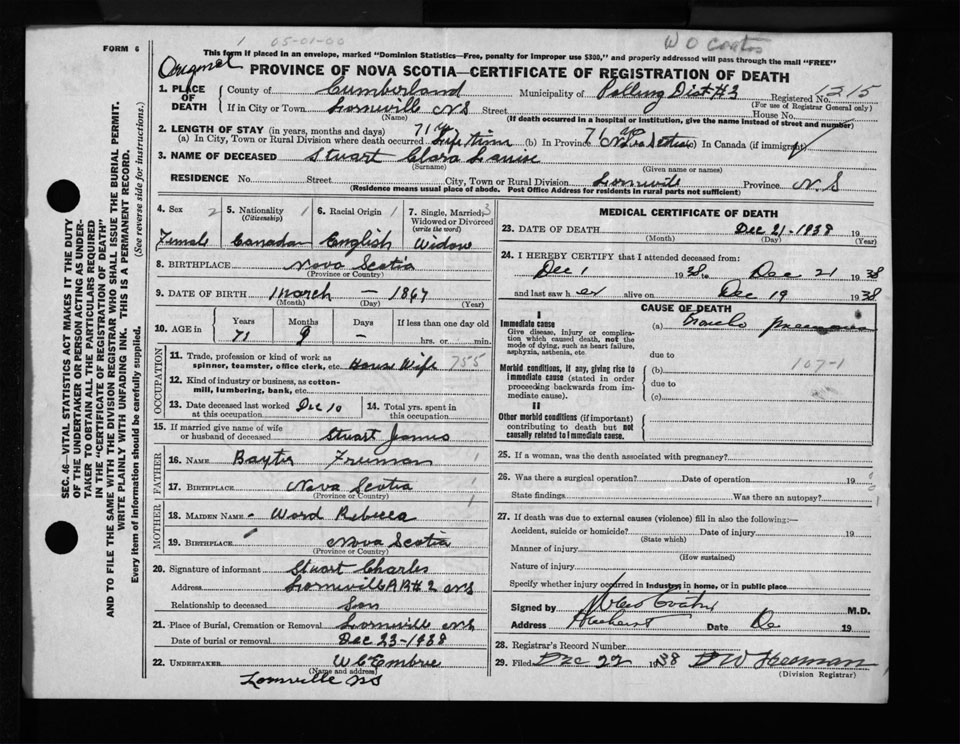 FORM 6
1 05-01-00
W O Coates
This form if placed in an envelope, marked "Dominion Statistics—Free, penalty for improper use $300," and properly addressed will pass through the mail "FREE"
Original
PROVINCE OF NOVA SCOTIA—CERTIFICATE OF REGISTRATION OF DEATH
1. PLACE OF DEATH
County of Cumberland Municipality of Polling Dist #3 Registered No. 1215
(For use of Registrar General only)
If in City or Town Lornville NS Street House No.
(Name) (If death occurred in a hospital or institution, give the name instead of street and number)
2. LENGTH OF STAY (in years, months and days)
(a) In City, Town or Rural Division where death occurred 71 yr Life time (b) In Province Nova Scotia (c) In Canada (if immigrant)
3. NAME OF DECEASED Stuart Clara Louise
(Surname) (Given name or names)
RESIDENCE No. Street City, Town or Rural Division Lornvill Province N.S
(Residence means usual place of abode. Post Office Address for residents in rural parts not sufficient)
SEC. 46—VITAL STATISTICS ACT MAKES IT THE DUTY
OF THE UNDERTAKER OR PERSON ACTING AS UNDER-
TAKER TO OBTAIN ALL THE PARTICULARS REQUIRED
IN THE "CERTIFICATE OF REGISTRATION OF DEATH"
AND TO FILE THE SAME WITH THE DIVISION REGISTRAR WHO SHALL ISSUE THE BURIAL PERMIT.
WRITE PLAINLY WITH UNFADING INK. THIS IS A PERMANENT RECORD.
Every item of information should be carefully supplied. (See reverse side for instructions.)
4. Sex 2 5. Nationality 1 6. Racial Origin 1 7. Single, Married, 3
(Citizenship) Widowed or Divorced
(write the word)
Female Canadian English Widow
8. BIRTHPLACE Nova Scotia
(Province or Country)
9. DATE OF BIRTH March — 1867
(Month) (Day) (Year)
10. AGE IN Years Months Days If less than one day old
71 9 — hrs. or min.
OCCUPATION
11. Trade, profession or kind of work as
spinner, teamster, office clerk, etc. House Wife 755
12. Kind of industry or business, as cotton-
mill, lumbering, bank, etc.
13. Date deceased last worked Dec 10 14. Total yrs. spent in
at this occupation in this occupation
15. If married give name of wife
or husband of deceased Stuart James
FATHER
16. NAME Baxter Freeman 1
17. BIRTHPLACE Nova Scotia 1
(Province or Country)
MOTHER
18. MAIDEN NAME Ward Rebecca 1
19. BIRTHPLACE Nova Scotia
(Province or Country)
20. Signature of informant Stuart Charles
Address Lornvill RR#2 NS
Relationship to deceased Son
21. Place of Burial, Cremation or Removal Lornville NS
Date of burial or removal Dec 23-1938
22. UNDERTAKER W C Embree
(Name and address)
Lornville NS
MEDICAL CERTIFICATE OF DEATH
23. DATE OF DEATH Dec 21-1938 19
(Month) (Day) (Year)
24. I HEREBY CERTIFY that I attended deceased from:
Dec 1 1938 to Dec 21 1938
and last saw her alive on Dec 19 1938
CAUSE OF DEATH
I
Immediate cause (a) Broncho pneumonia
Give disease, injury or complica-
tion which caused death, not the
mode of dying, such as heart failure,
asphyxia, asthenia, etc.
due to
Morbid conditions, if any, giving rise to (b) 107-1
immediate cause (stated in order
proceeding backwards from im-
mediate cause).
due to
(c)
II
Other morbid conditions (if important)
contributing to death but not
causally related to immediate cause.
25. If a woman, was the death associated with pregnancy?
26. Was there a surgical operation? Date of operation 19
State findings Was there an autopsy?
27. If death was due to external causes (violence) fill in also the following:—
Accident, suicide or homicide? Date of injury 19
(State which)
Manner of injury
(How sustained)
Nature of injury
Specify whether injury occurred in Industry, in home, or in public place
Signed by M.D.
Address Amherst Date De 19
28. Registrar's Record Number
29. Filed Dec 22 1938 D W Freeman
(Division Registrar)